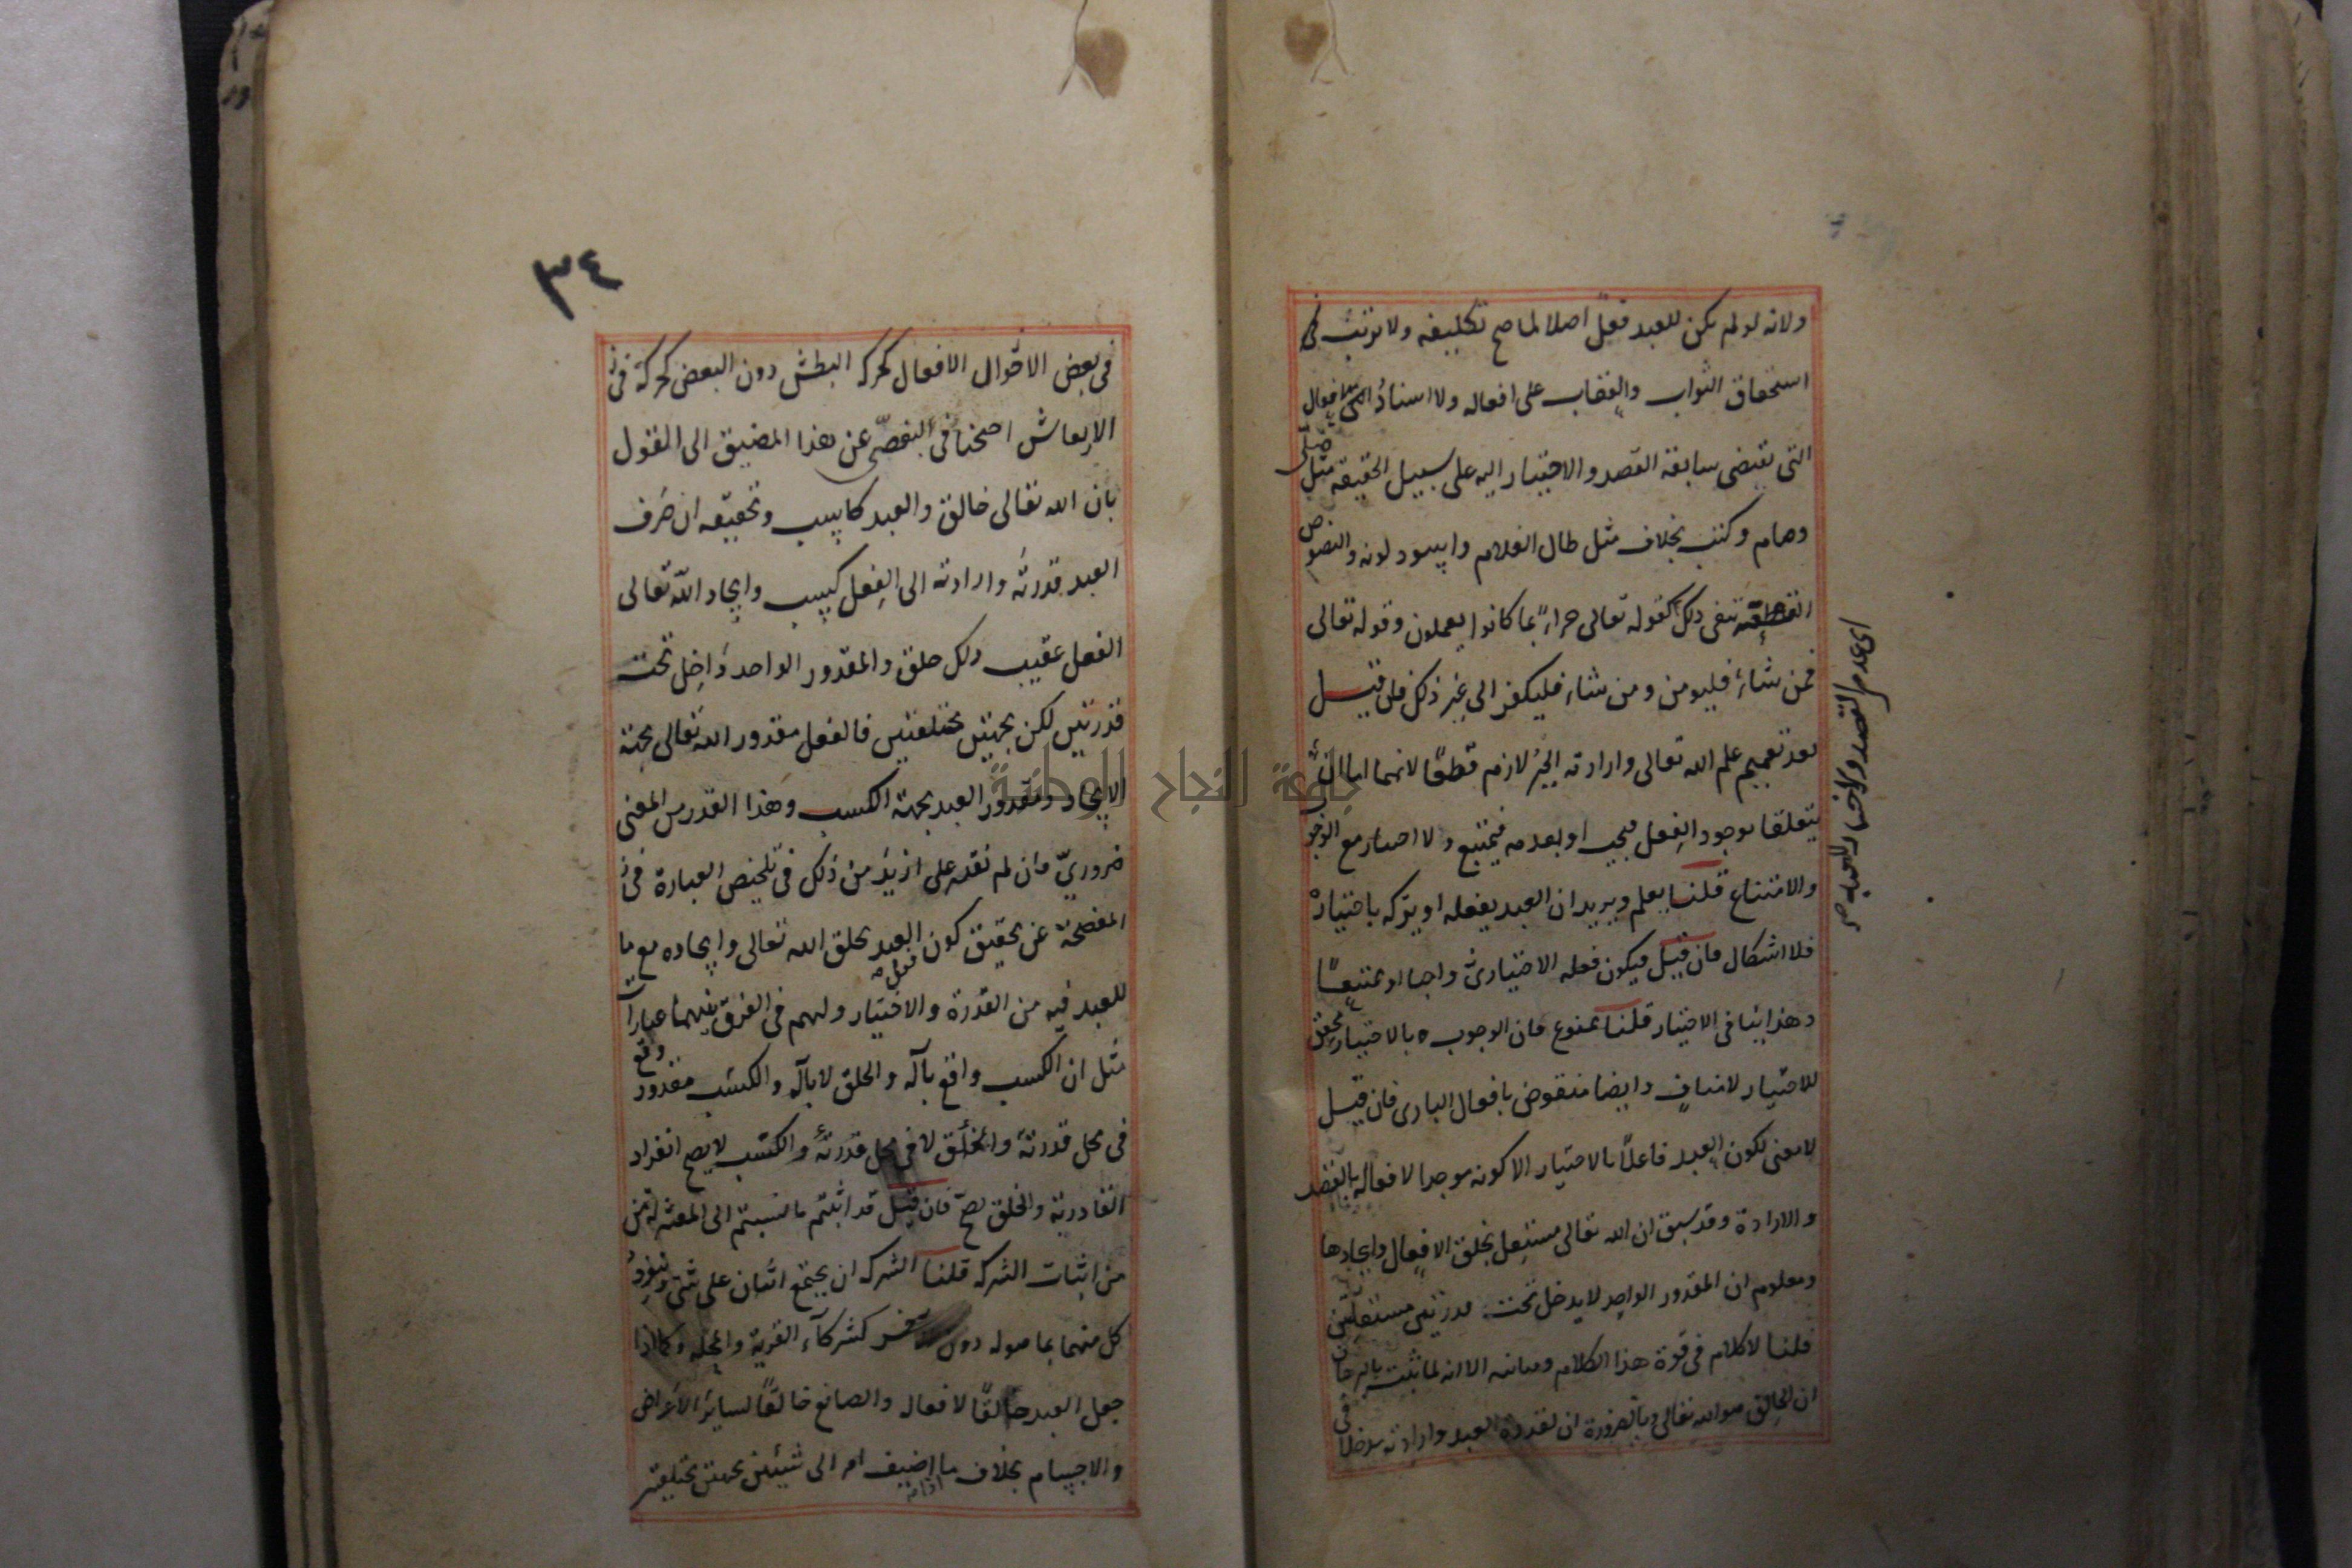 ولانه لو لم يكن للعبد فعل اصلا لما صح تكليفه ولا ترتب
استحقاق الثواب والعقاب على افعاله ولا اسناد الافعال
التي يقتضى سابقة القصد والاختيار اليه على سبيل الحقيقة مثل صلى
وصام وكتب بخلاف مثل طال الغلام واسود لونه والنصوص
القطعية تنفى ذلك كقوله تعالى جزاء بما كانوا يعملون وقوله تعالى
فمن شاء فليومن ومن شاء فليكفر الى غير ذلك فان قيل
بعد تعميم علم الله تعالى وارادته الجبر لازم قطعا لانهما اما ان
يتعلقا بوجود الفعل فيجب او بعدمه فيمتنع ولا اختيار مع الوجوب
والامتناع قلنا يعلم ويريد ان العبد يفعله او يتركه باختياره
فلا اشكال فان قيل فيكون فعله الاختيارى واجبا او ممتنعا
وهذا ينافى الاختيار قلنا ممنوع فان الوجوب بالاختيار محقق
للاختيار لا مناف وايضا منقوض بافعال البارى فان قيل
لا معنى لكون العبد فاعلا بالاختيار الا كونه موجدا لافعاله بالقصد
والارادة وقد سبق ان الله تعالى مستقل بخلق الافعال وايجادها
ومعلوم ان المقدور الواحد لا يدخل تحت قدرتين مستقلتين
قلنا لا كلام فى قوة هذا الكلام ومتانته الا انه لما ثبت بالبرهان
ان الخالق هو الله تعالى وبالضرورة ان لقدرة العبد وارادته مدخلا فى
٣٤
فى بعض الافعال كحركة البطش دون البعض كحركة
الارتعاش احتجنا فى التفصى عن هذا المضيق الى القول
بان الله تعالى خالق والعبد كاسب وتحقيقه ان صرف
العبد قدرته وارادته الى الفعل كسب وايجاد الله تعالى
الفعل عقيب ذلك خلق والمقدور الواحد داخل تحت
قدرتين لكن بجهتين مختلفتين فالفعل مقدور الله تعالى بجهة
الايجاد ومقدور العبد بجهة الكسب وهذا القدر من المعنى
ضرورى وان لم نقدر على ازيد من ذلك فى تلخيص العبارة
المفصحة عن تحقيق كون فعل العبد بخلق الله تعالى وايجاده مع ما
للعبد فيه من القدرة والاختيار ولهم فى الفرق بينهما عبارات
مثل ان الكسب واقع بآلة والخلق لا بآلة والكسب مقدور وقع
فى محل قدرته والخلق لا فى محل قدرته والكسب لا يصح انفراد
القادر به والخلق يصح فان قيل قد اثبتم ما نسبتم الى المعتزلة من
من اثبات الشركة قلنا الشركة ان يجتمع اثنان على شئ وينفرد
كل منهما بما هو له دون الاخر كشركاء القرية والمحلة وكما اذا
جعل العبد خالقا لافعاله والصانع خالقا لساير الاعراض
والاجسام بخلاف ما اذا اضيف امر الى شيئين بجهتين مختلفتين
جامعة النجاح الوطنية